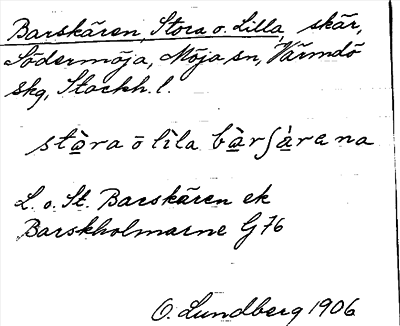 Barskären, Stora o. Lilla, skär,
Södermöja, Möja sn, Värmdö
skg, Stockh. l.
stɑ̀ra ō lìla bɑ̀rʃɑ́rɐna
L. o. St. Barskären ek
Barskholmarne G 76
O. Lundberg 1906